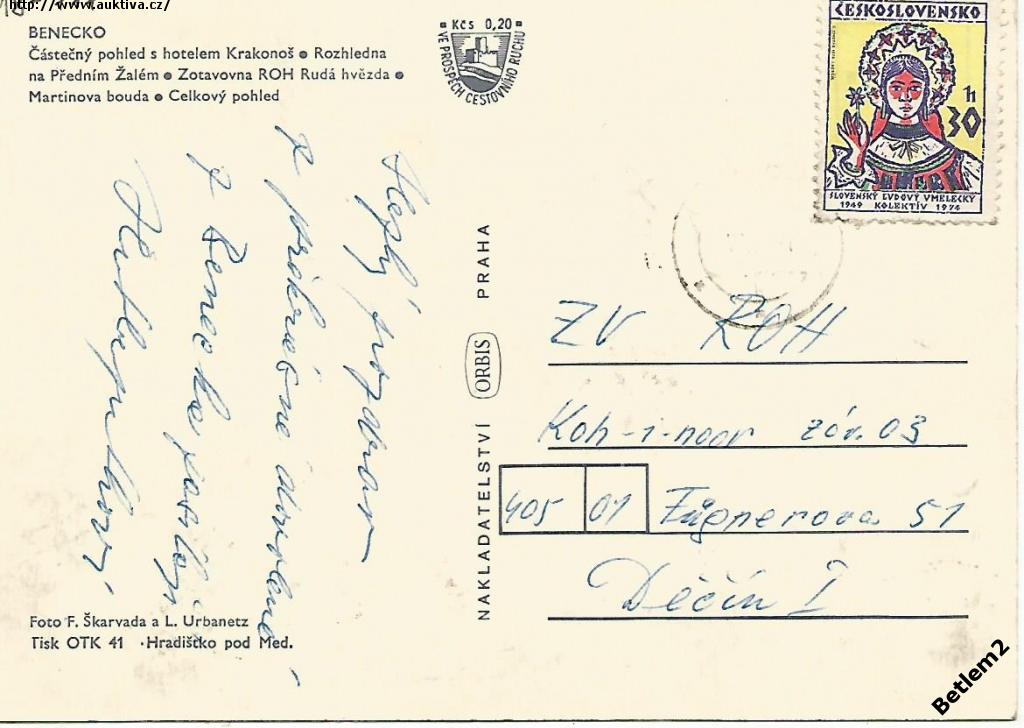 http://www.auktiva.cz/
BENECKO
Částečný pohled s hotelem Krakonoš • Rozhledna
na Předním Žalém • Zotavovna ROH Rudá hvězda •
Martinova bouda • Celkový pohled
Kčs 0,20
VE PROSPĚCH CESTOVNÍHO RUCHU
ČESKOSLOVENSKO
30 h
SLOVENSKÝ ĽUDOVÝ UMELECKÝ
1949 KOLEKTÍV 1974
Hezký pozdrav
z překrásné dovolené
z Benecka
NAKLADATELSTVÍ ORBIS PRAHA
ZV ROH
Koh-i-noor záv. 03
405 01 Fügnerova 51
Děčín I
Foto F. Škarvada a L. Urbanetz
Tisk OTK 41 · Hradištko pod Med.
Betlem2